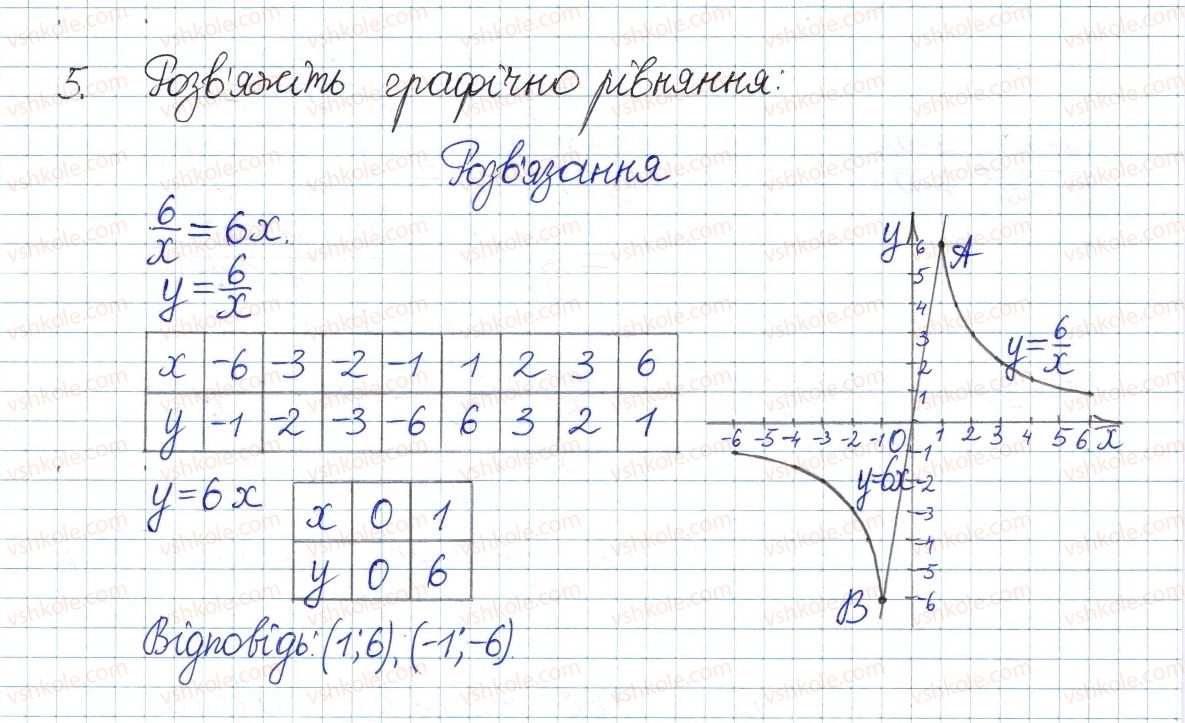 5. Розв'яжіть графічно рівняння:
Розв'язання
6/x = 6x.
y = 6/x
x -6 -3 -2 -1 1 2 3 6
y -1 -2 -3 -6 6 3 2 1
y = 6x
x 0 1
y 0 6
Відповідь: (1; 6), (-1; -6)
y
6 A
5
4
3
y = 6/x
2
1
-6 -5 -4 -3 -2 -1 0 1 2 3 4 5 6 x
-1
y=6x -2
-3
-4
-5
B -6
vshkole.com